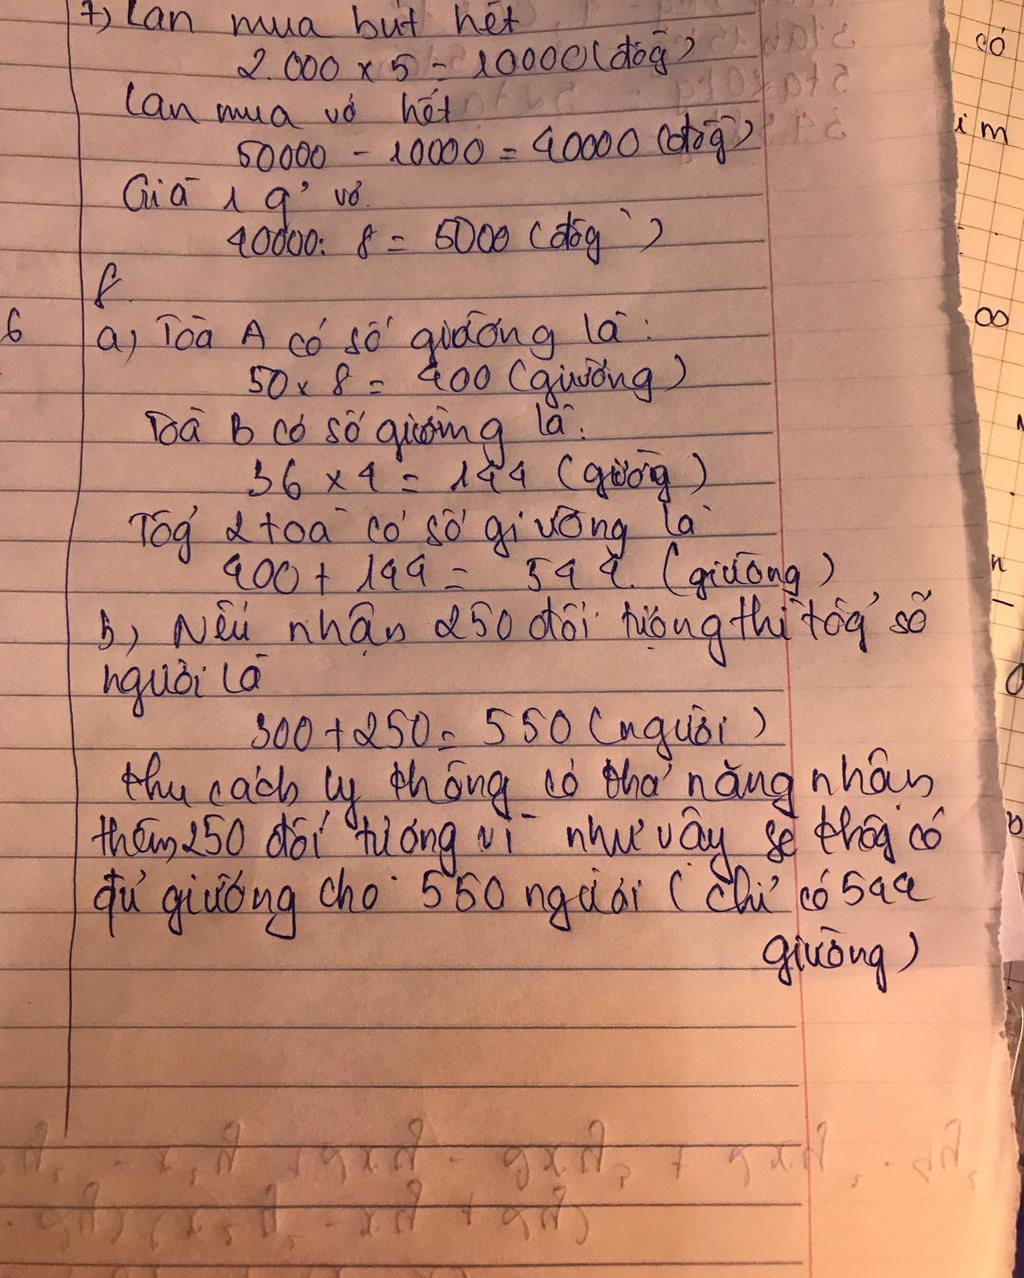 7) Lan mua bút hết
2.000 x 5 = 10000 (đồg)
Lan mua vở hết
50000 - 10000 = 40000 (đồg)
Giá 1 q' vở
40000: 8 = 5000 (đồg)
8.
6
a) Toà A có số giường là:
50 x 8 = 400 (giường)
Toà B có số giường là:
36 x 4 = 144 (gường)
Tổg 2 toà có số giường là
400 + 144 = 544. (giường)
b) Nếu nhận 250 đối tượng thì tổg số
người là
300 + 250 = 550 (người)
khu cách ly không có khả năng nhận
thêm 250 đối tượng vì như vậy sẽ khôg có
đủ giường cho 550 người (chỉ có 544
giường)
có
im
∞
n